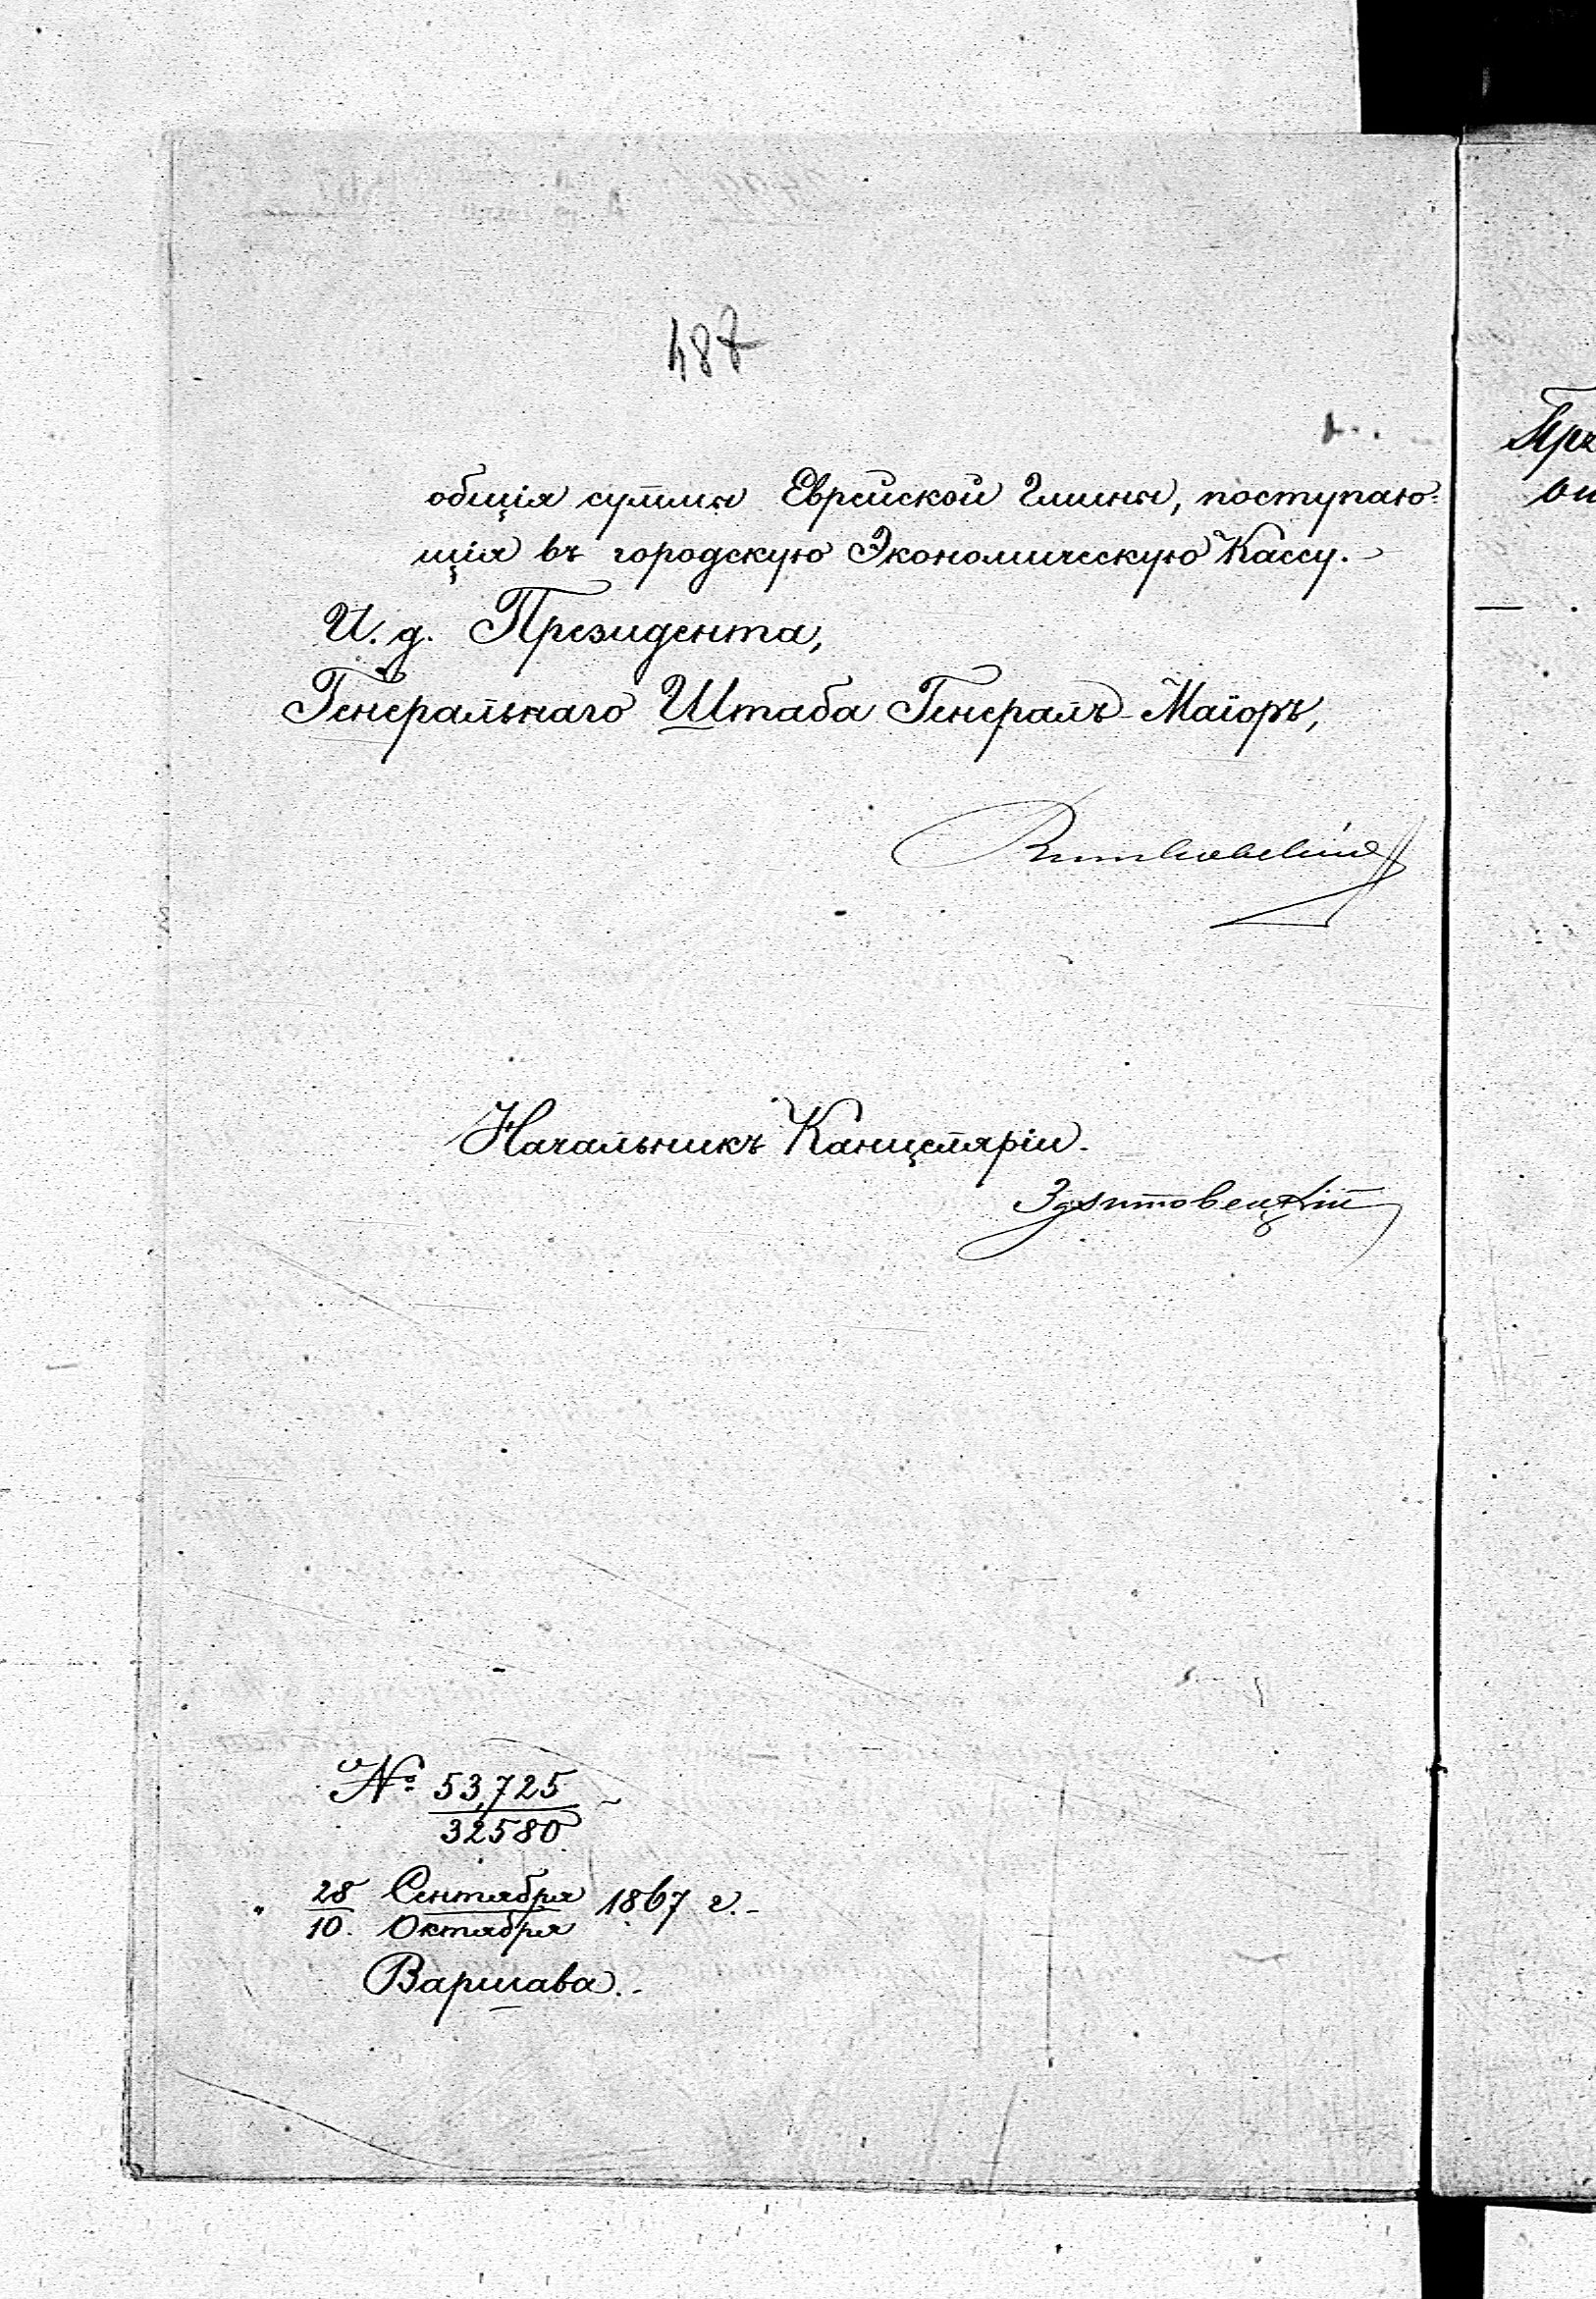 487
общія суммы Еврейской Гмины, поступаю-
щія въ городскую Экономическую Кассу.
И. д. Президента,
Генеральнаго Штаба Генералъ-Маіоръ,
Витковскій
Начальникъ Канцеляріи.
Здзитовецкій
№ 53,725
32580
28 Сентября 1867 г.
10. Октября
Варшава.